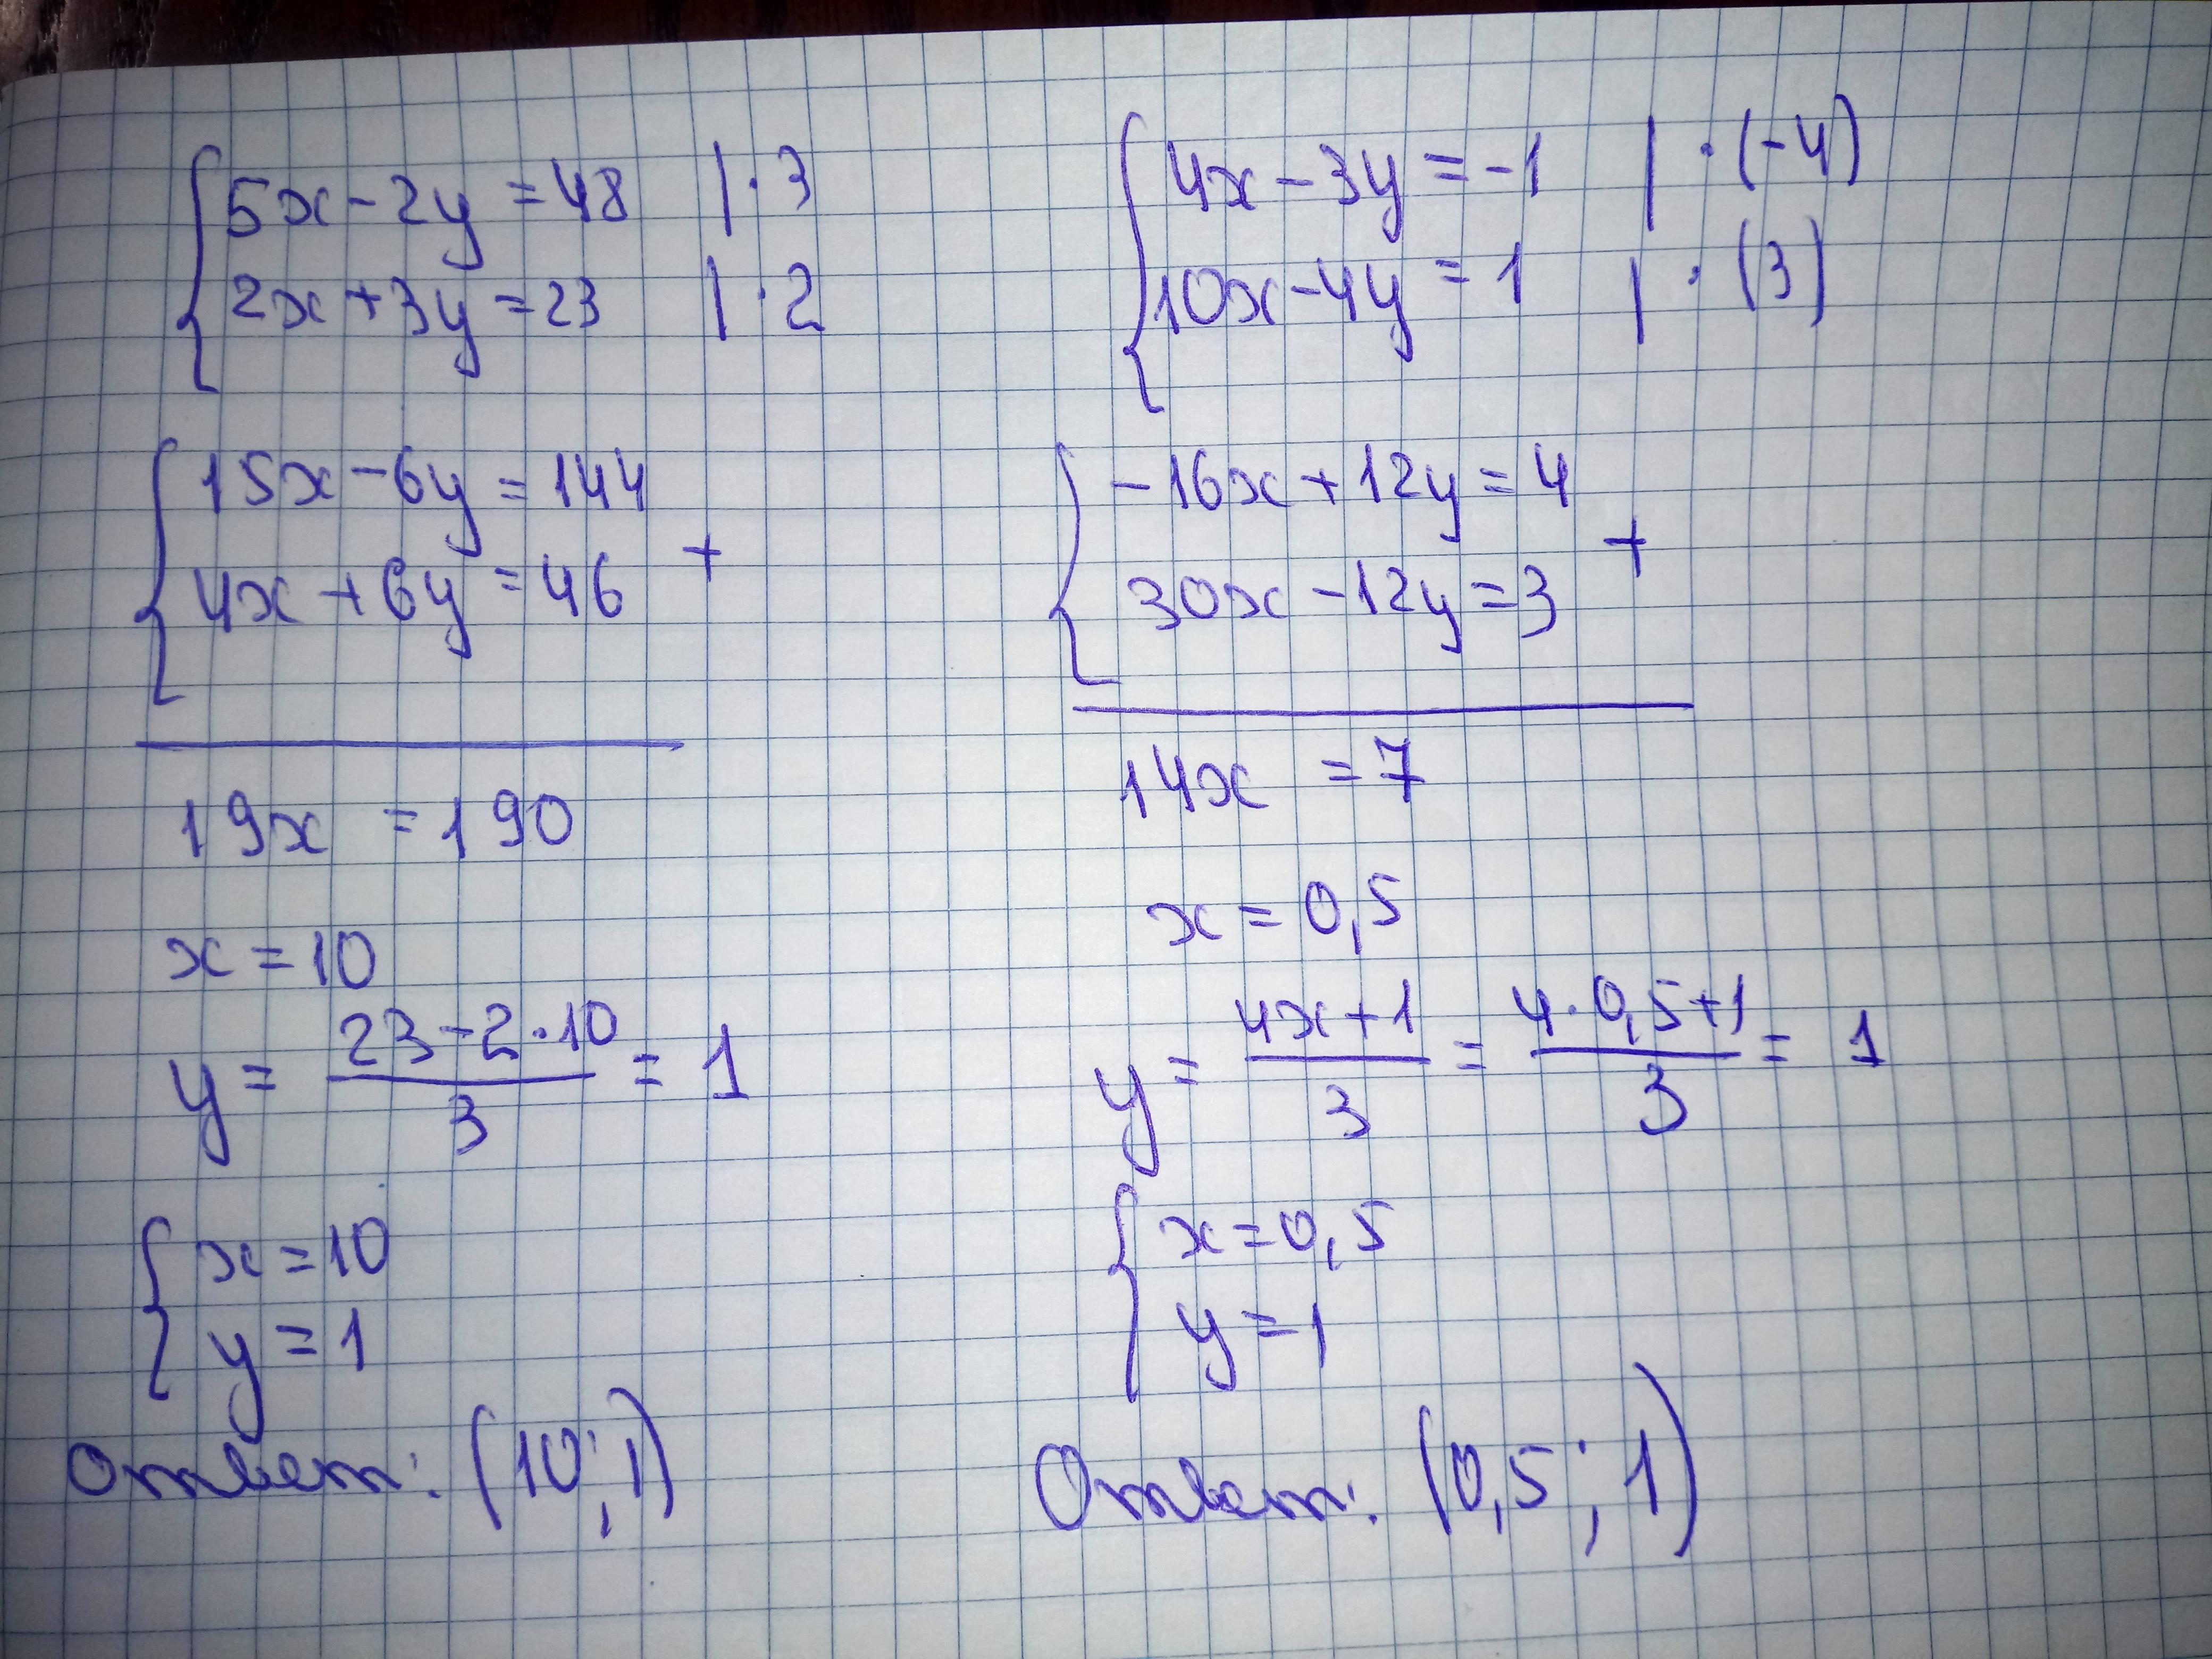 5x-2y=48 |·3
2x+3y=23 |·2
15x-6y=144
4x+6y=46 +
19x =190
x=10
y= (23-2·10)/3 =1
x=10
y=1
Ответ: (10;1)
4x-3y=-1 |·(-4)
10x-4y=1 |·(3)
-16x+12y=4
30x-12y=3 +
14x =7
x=0,5
y= (4x+1)/3 = (4·0,5+1)/3 = 1
x=0,5
y=1
Ответ: (0,5;1)